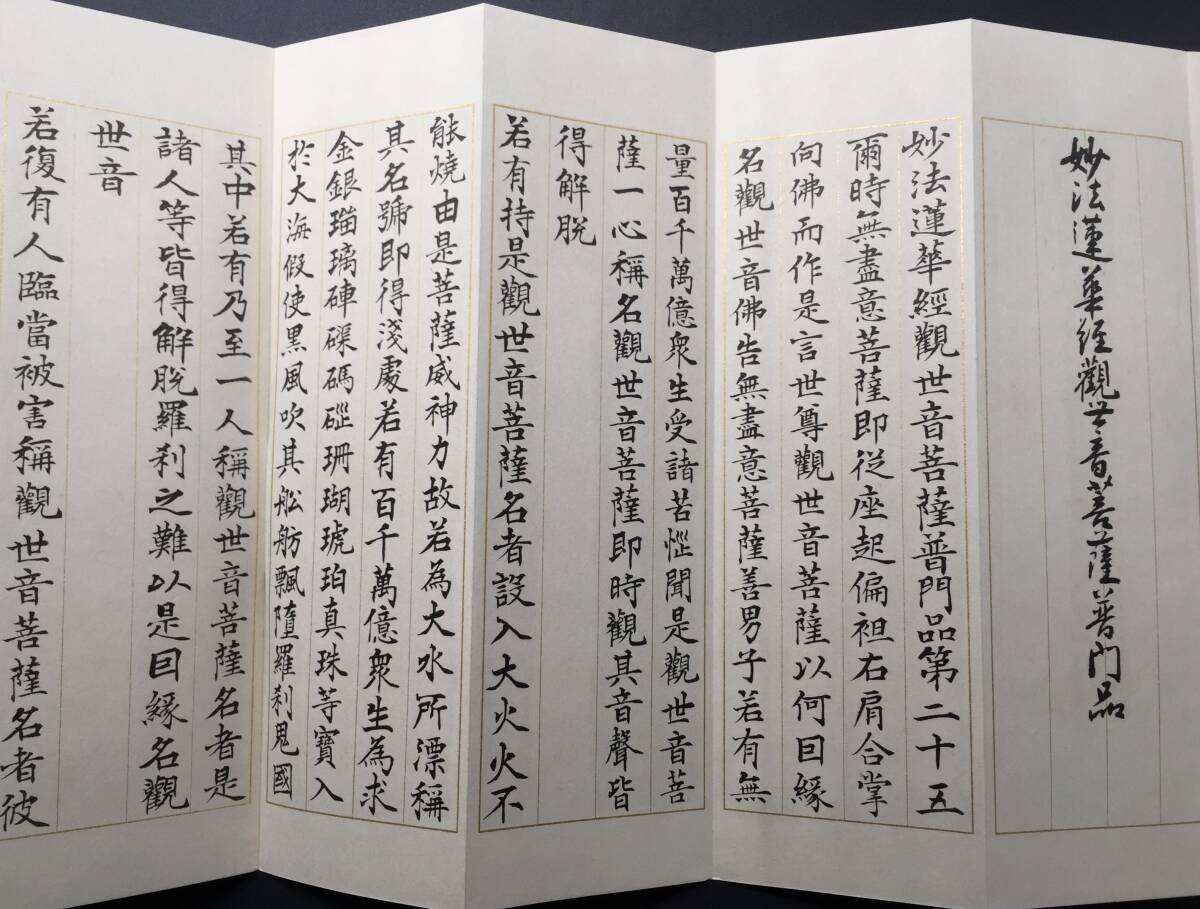 妙法蓮華經觀世音菩薩普門品
妙法蓮華經觀世音菩薩普門品第二十五
爾時無盡意菩薩即從座起偏袒右肩合掌
向佛而作是言世尊觀世音菩薩以何因緣
名觀世音佛告無盡意菩薩善男子若有無
量百千萬億衆生受諸苦惱聞是觀世音菩
薩一心稱名觀世音菩薩即時觀其音聲皆
得解脫
若有持是觀世音菩薩名者設入大火火不
能燒由是菩薩威神力故若為大水所漂稱
其名號即得淺處若有百千萬億衆生為求
金銀瑠璃硨磲碼碯珊瑚琥珀真珠等寶入
於大海假使黒風吹其舩舫飄墮羅刹鬼國
其中若有乃至一人稱觀世音菩薩名者是
諸人等皆得解脫羅刹之難以是因緣名觀
世音
若復有人臨當被害稱觀世音菩薩名者彼